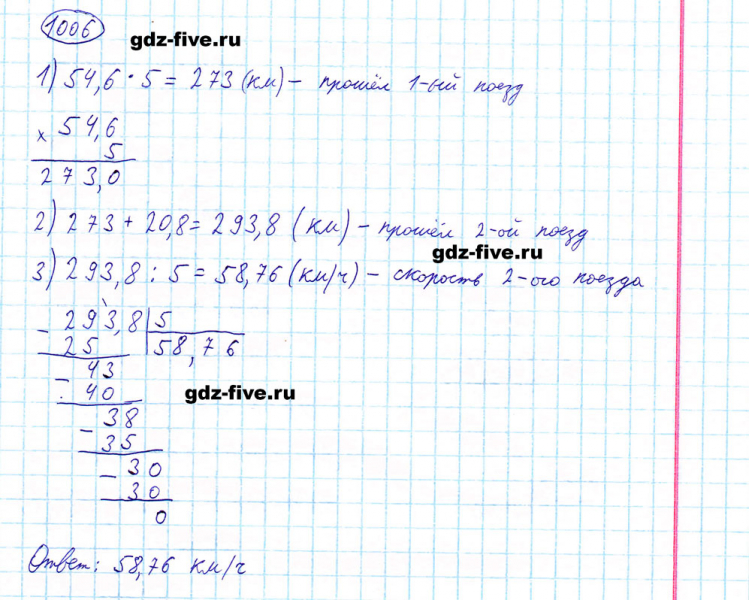 1006
gdz-five.ru
1) 54,6 · 5 = 273 (км) – прошёл 1-ый поезд
× 54,6
5
273,0
2) 273 + 20,8 = 293,8 (км) – прошёл 2-ой поезд
gdz-five.ru
3) 293,8 : 5 = 58,76 (км/ч) – скорость 2-ого поезда
- 293,8 | 5
25 | 58,76
- 43
40
gdz-five.ru
- 38
35
- 30
30
0
Ответ: 58,76 км/ч